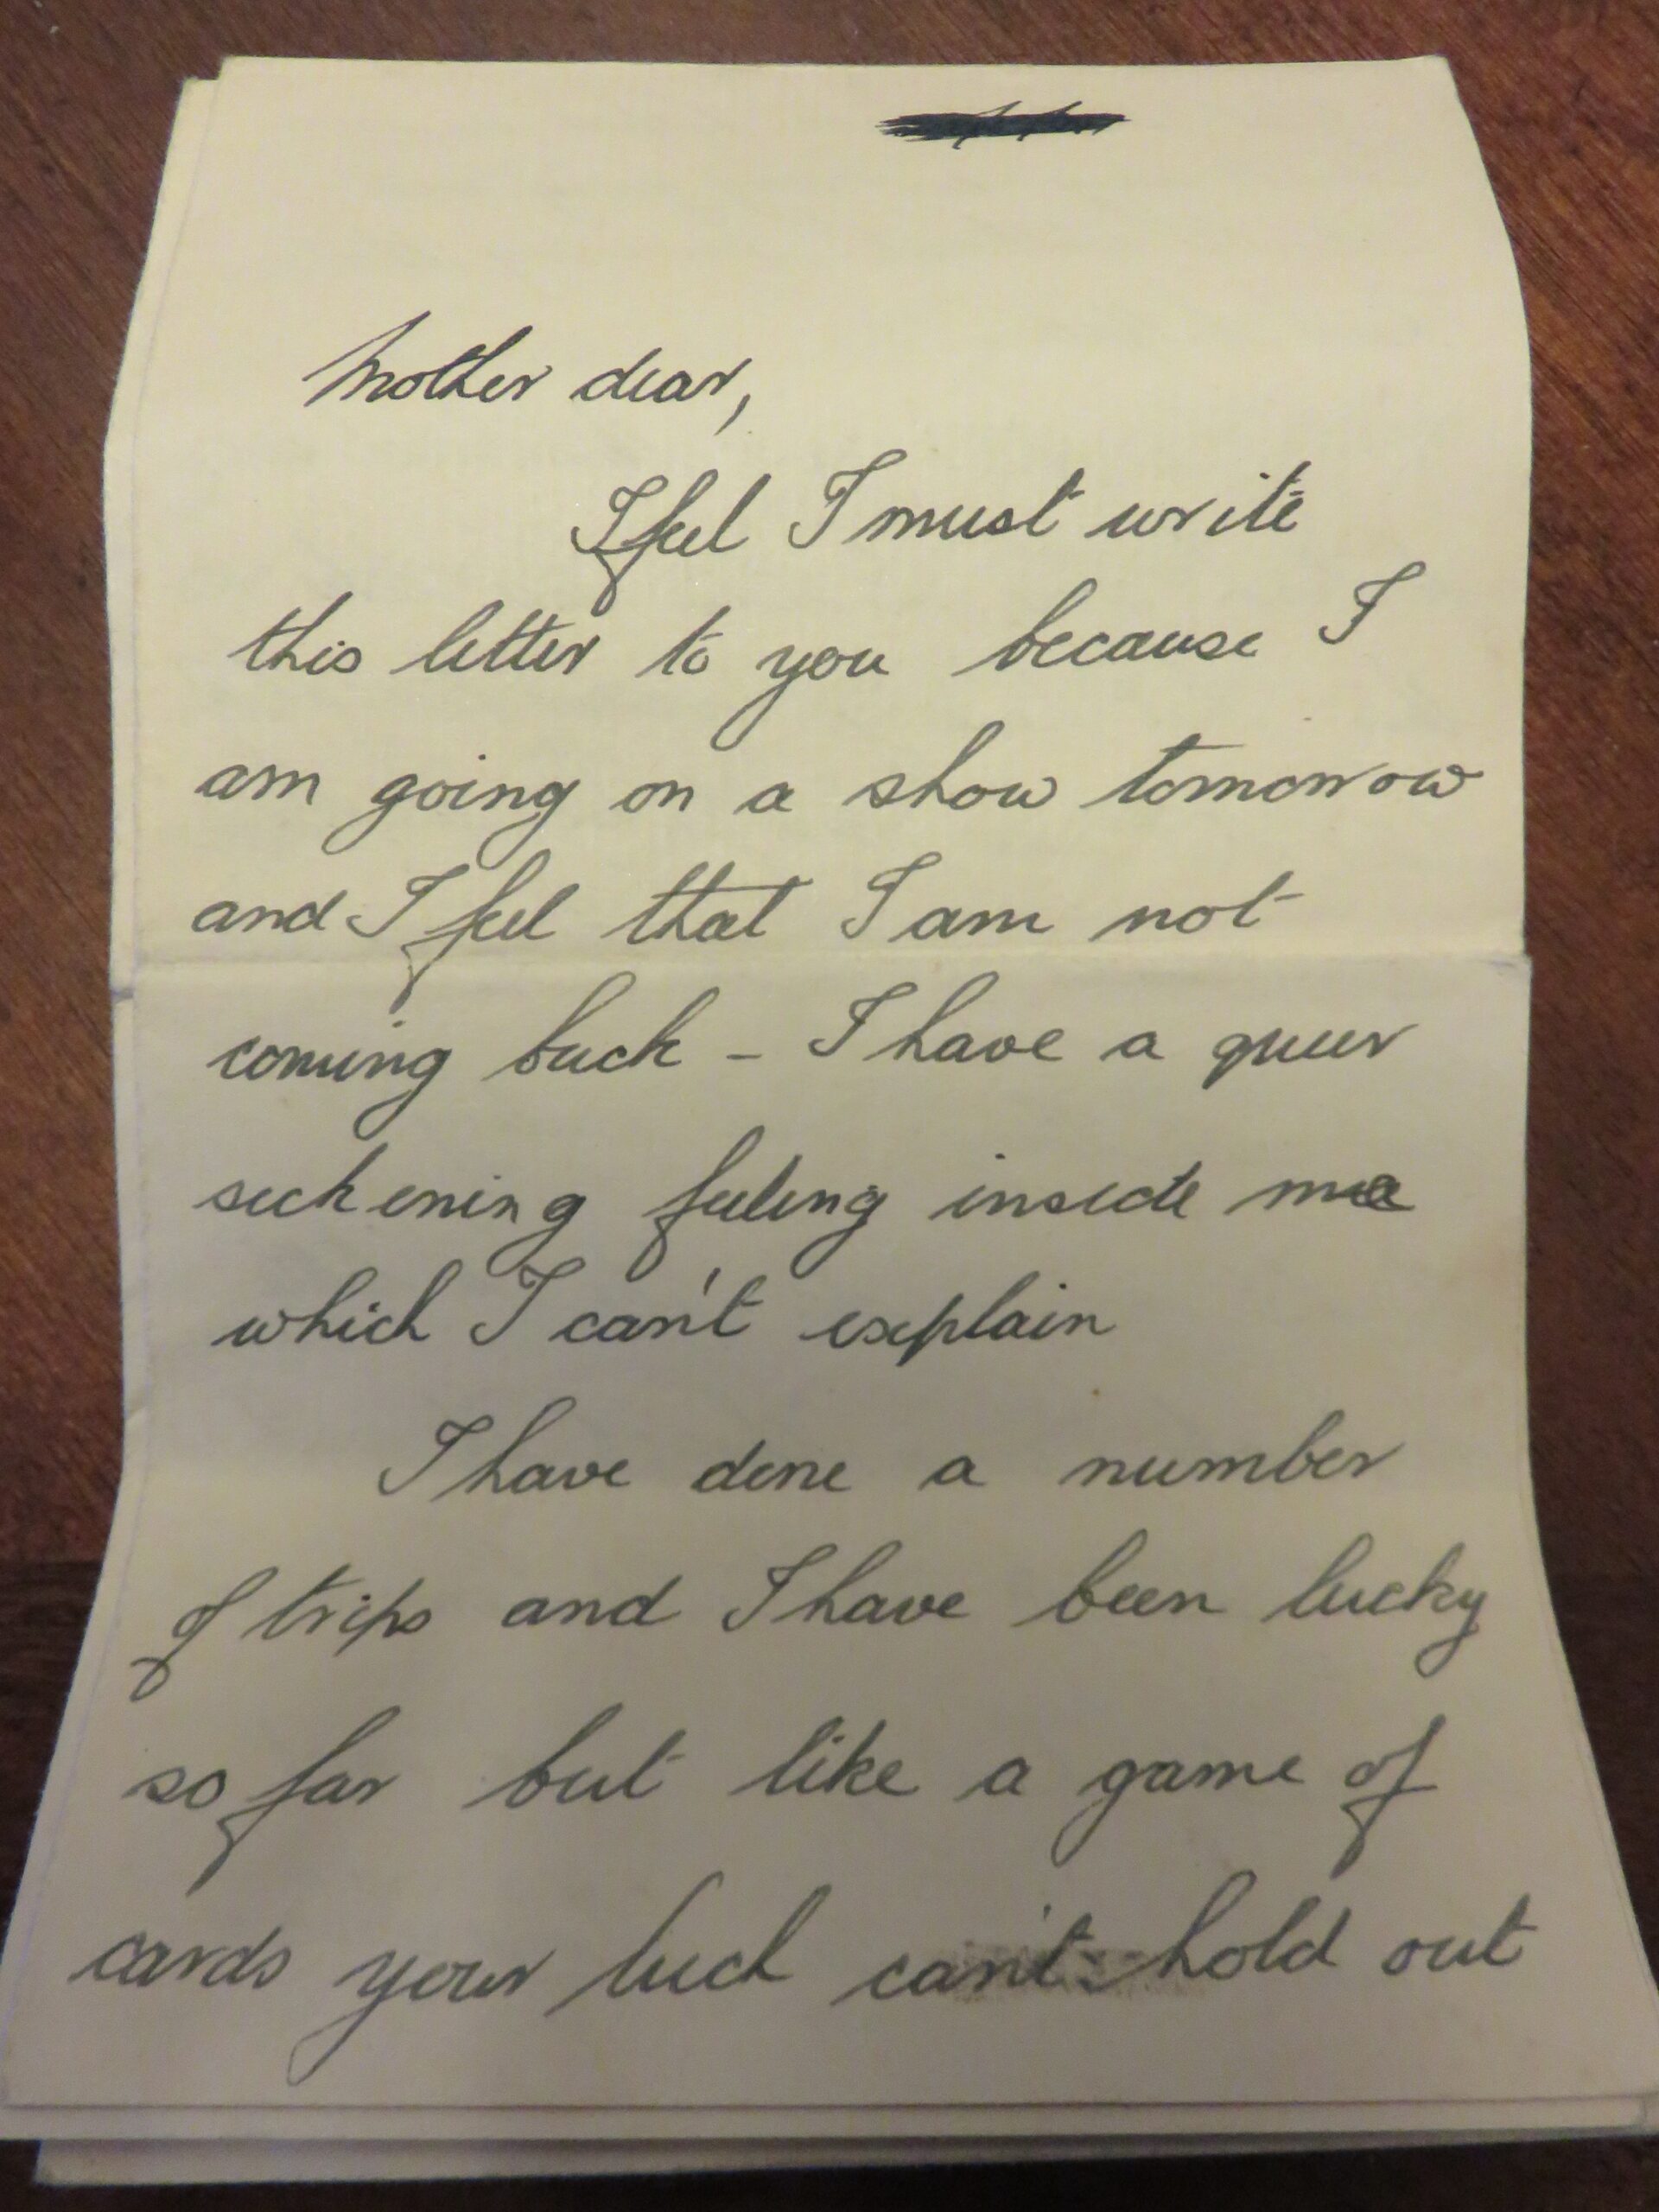 Mother dear,
I feel I must write
this letter to you because I
am going on a show tomorrow
and I feel that I am not
coming back - I have a queer
sickening feeling inside me
which I can't explain
I have done a number
of trips and I have been lucky
so far but like a game of
cards your luck can't hold out